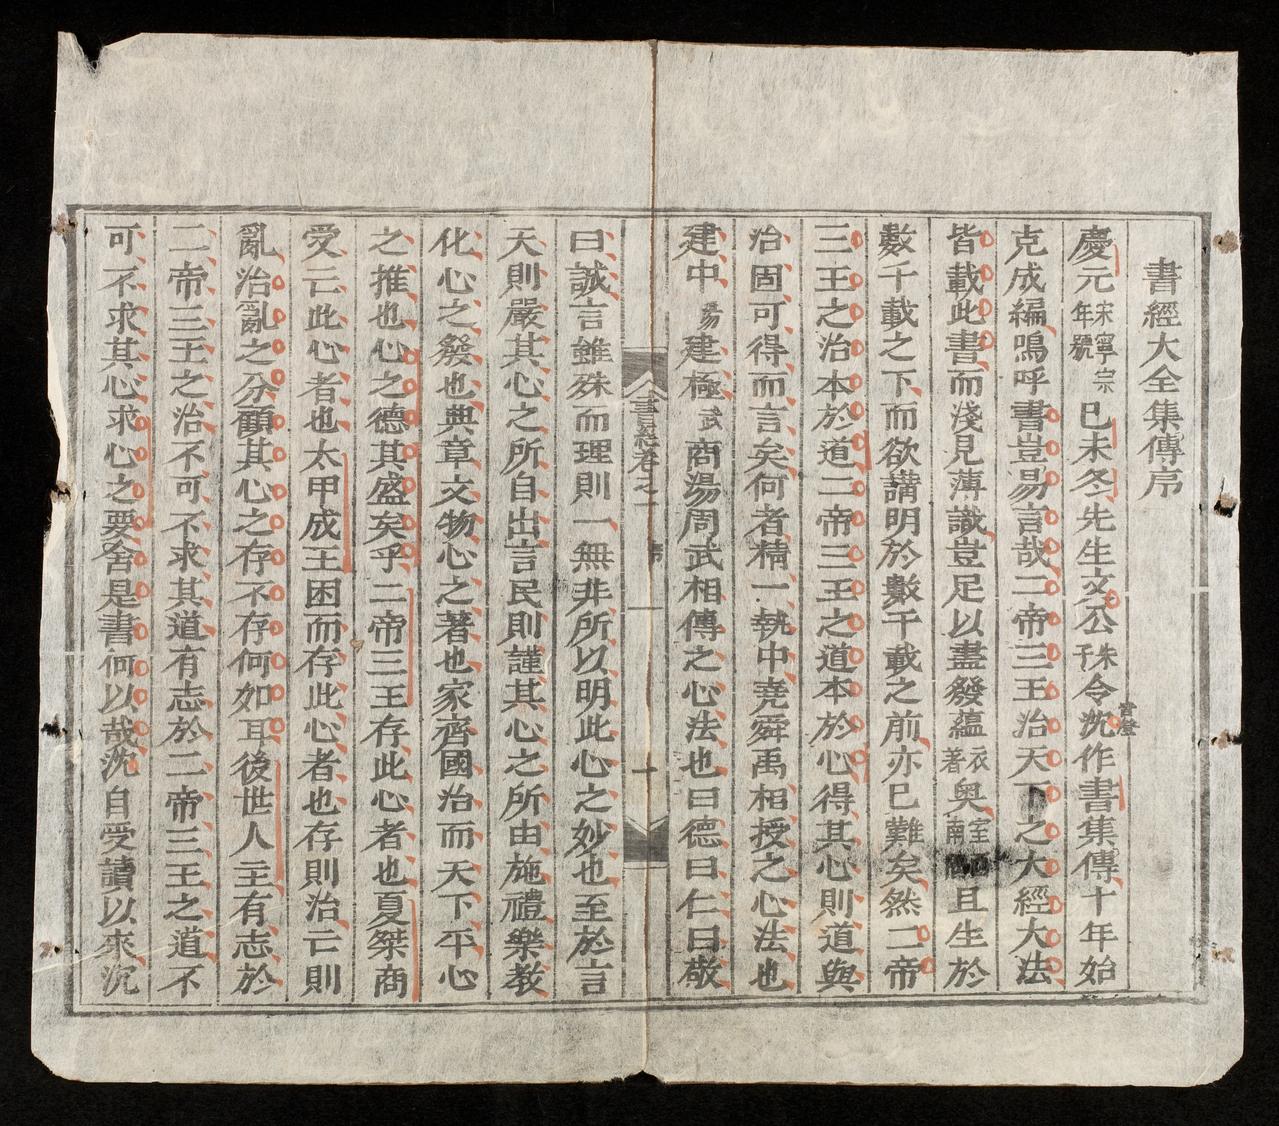 書經大全集傳序
慶元宋寧宗年號已未冬先生文公朱子令沈作書集傳十年始
克成編嗚呼書豈易言哉二帝三王治天下之大經大法
皆載此書而淺見薄識豈足以盡發蘊衣著奧室南且生於
數千載之下而欲講明於數千載之前亦已難矣然二帝
三王之治本於道二帝三王之道本於心得其心則道與
治固可得而言矣何者精一執中堯舜禹相授之心法也
建中湯建極武商湯周武相傳之心法也曰德曰仁曰敬
書經卷之一
序
十
曰誠言雖殊而理則一無非所以明此心之妙也至於言
天則嚴其心之所自出言民則謹其心之所由施禮樂教
化心之發也典章文物心之著也家齊國治而天下平心
之推也心之德其盛矣乎二帝三王存此心者也夏桀商
受亡此心者也太甲成王困而存此心者也存則治亡則
亂治亂之分顧其心之存不存何如耳後世人主有志於
二帝三王之治不可不求其道有志於二帝三王之道不
可不求其心求心之要舍是書何以哉沈自受讀以來沉